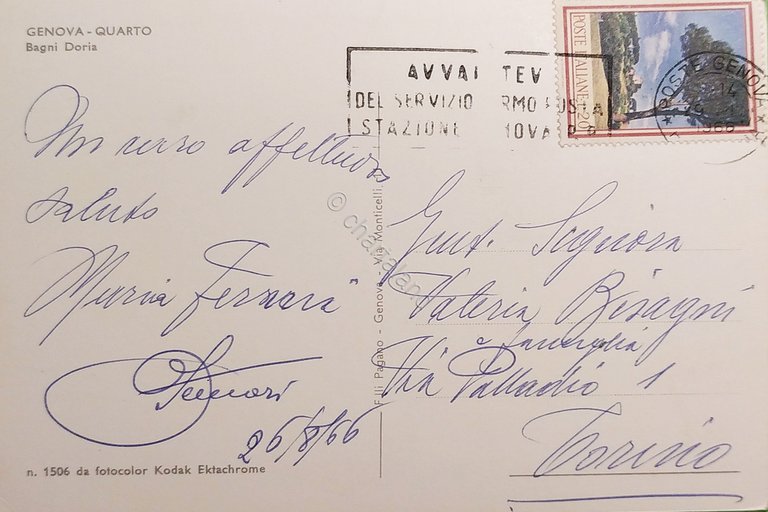 GENOVA - QUARTO
Bagni Doria
AVVAL TEV
DEL SERVIZIO RMO POSTA
STAZIONE NOVA P.P.
POSTE ITALIANE L.20
POSTE GENOVA
1966
Un verso affettuoso
saluto
Maria Ferrara
26/8/66
n. 1506 da fotocolor Kodak Ektachrome
© charta
F.lli Pagano - Genova - Via Monticelli
Gent. Signora
Valeria Bisagni
e famiglia
Via Palladio 1
Torino